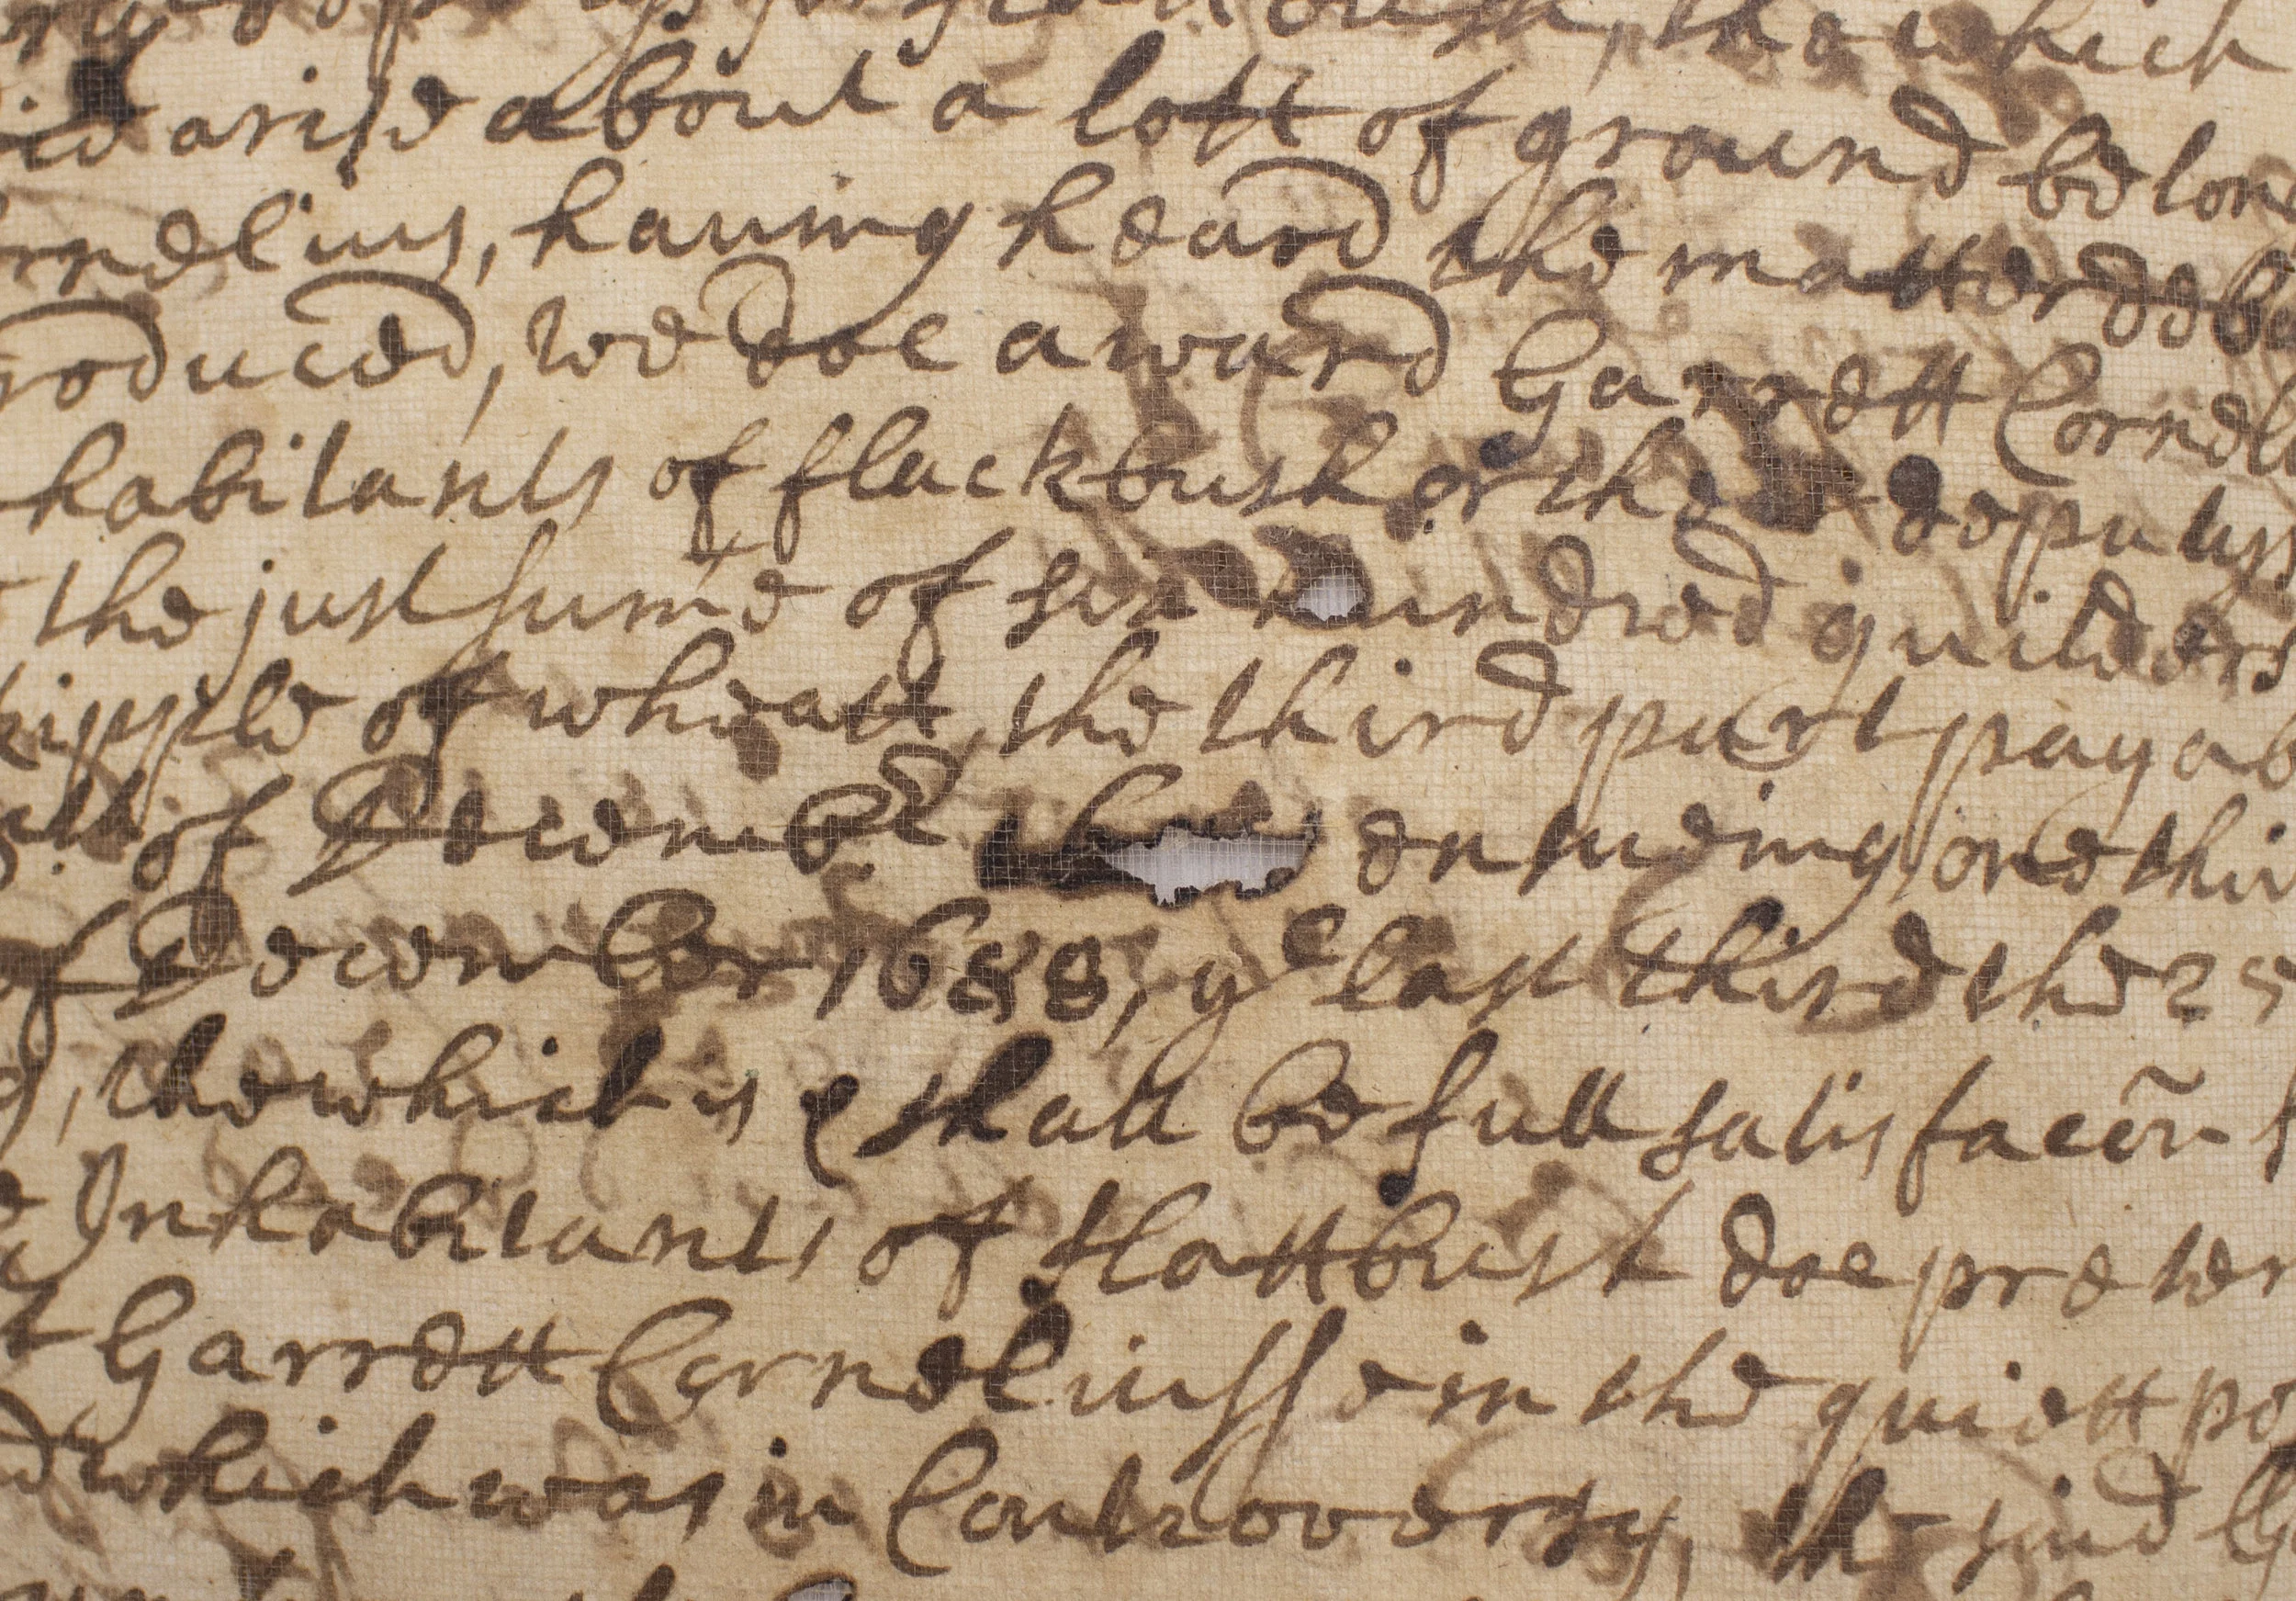 the which
arise about a lott of ground belon
rnelius, haueing heard the matter deba
roduced, we doe award Garrett Corneli
habitants of flackbush or the deputys
the just sume of six hundred guilders
kipple of wheatt, the third part payab
of Decembr this ensueing, one thir
of December 1688, ye last third the 25
g, the which is & shall be full satisfaccõn
Inhabitants of flattbush doe preten
t Garrett Corneliusse in the quiett po
d which was in Controversy, the said G